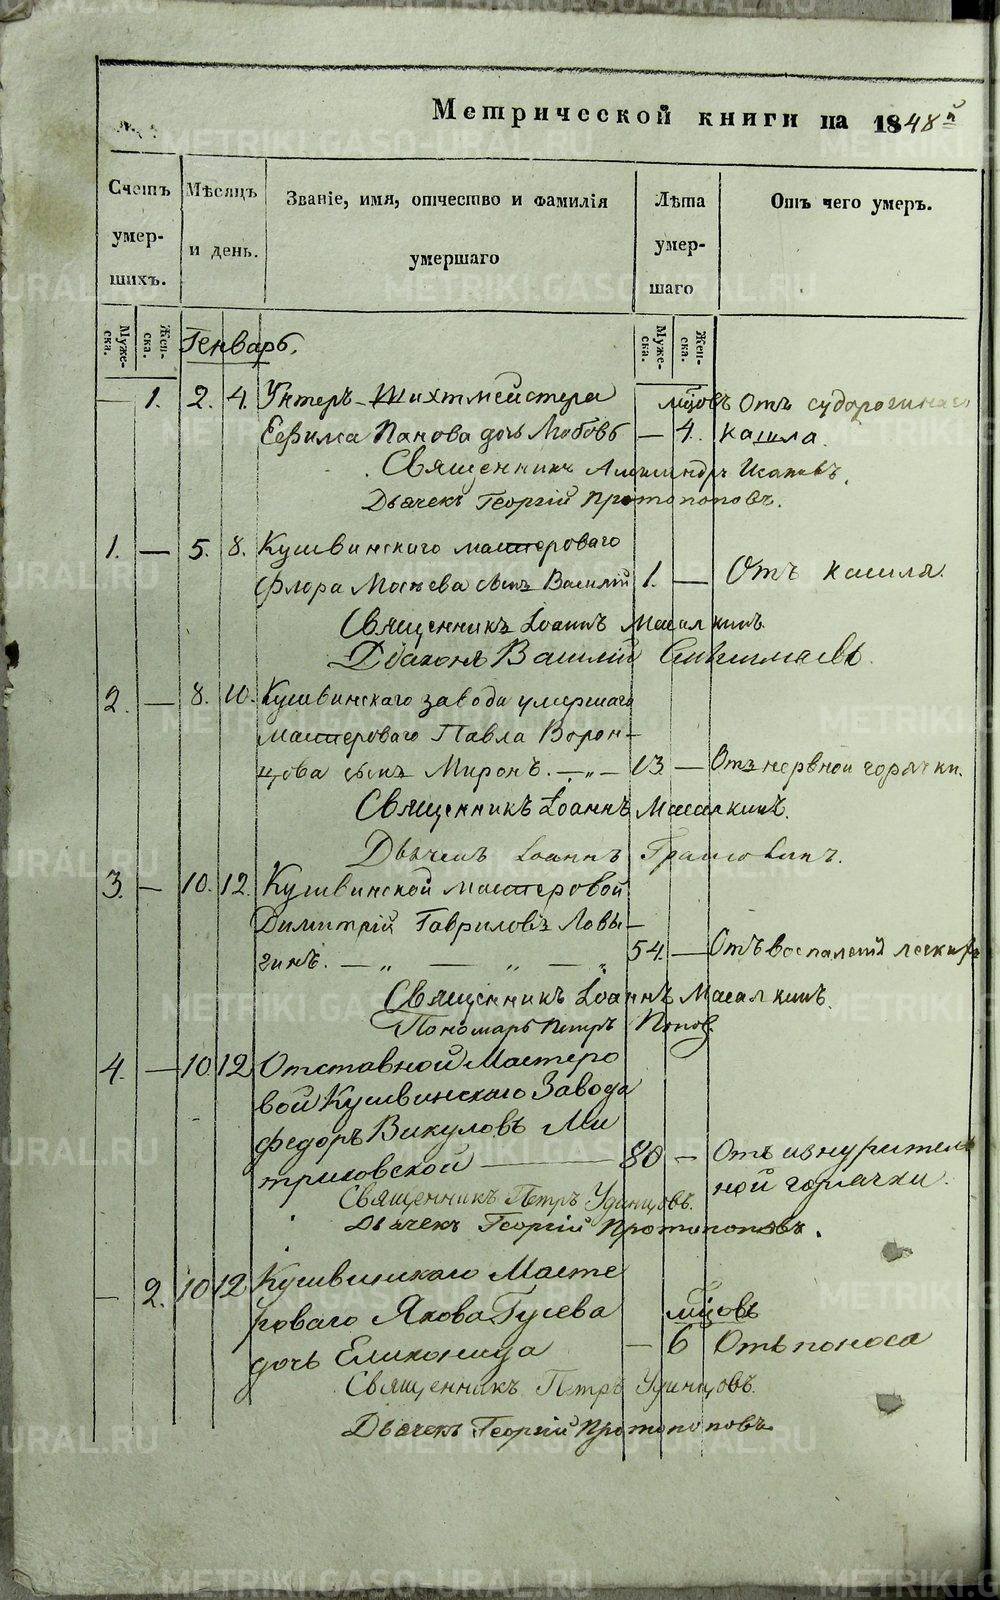 Метрической книги на 1848й
Счетъ умершихъ.
Мѣсяцъ и день.
Званіе, имя, отчество и фамилія умершаго
Лѣта умершаго
Отъ чего умеръ.
Мужеска. Женска.
Генварь.
Мужеска. Женска.
— 1. 2. 4. Унтеръ-Шихтмейстера мцовъ Отъ
Ефима Панова дочь Любовь — 4. кашла.
Священникъ Александръ
Дьячекъ Георгій Протопоповъ.
1. — 5. 8. Кушвинскаго мастероваго
Флора сынъ Василій 1. — Отъ кашля.
Священникъ Іоаннъ Масалкинъ.
Діаконъ Василій
2. — 8. 10. Кушвинскаго завода умершаго
мастероваго Павла Ворон-
цова сынъ Миронъ. — „ — 13 — Отъ нервной горячки.
Священникъ Іоаннъ Масалкинъ.
Дьячекъ Іоаннъ
3. — 10. 12. Кушвинской мастеровой
Димитрій Гавриловъ Ловы-
гинъ. — „ — „ — „ 54. — Отъ воспаленія легкихъ
Священникъ Іоаннъ Масалкинъ.
Пономарь Петръ Попов
4. — 10 12 Отставной Мастеро
вой Кушвинскаго Завода
Федоръ Викуловъ Ми
триковской — 80 — Отъ изнурител
ной горячки.
Священникъ Петръ Удинцовъ.
Дьячекъ Георгій Протопоповъ.
— 2. 10 12 Кушвинскаго Масте
роваго Якова Гусева мцовъ
дочь Еликонида — 6 Отъ поноса
Священникъ Петръ Удинцовъ.
Дьячекъ Георгій Протопоповъ
METRIKI.GASO-URAL.RU